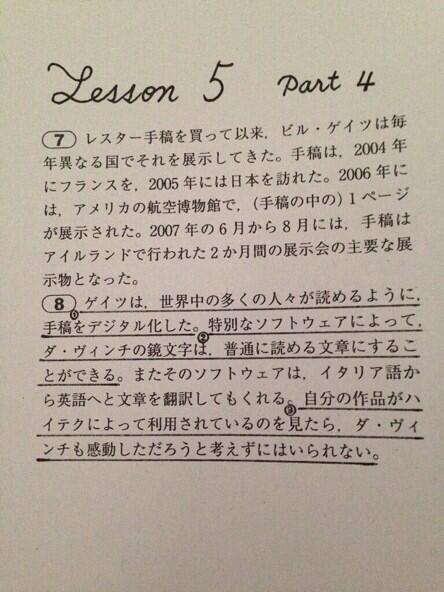 Lesson 5 Part 4
7 レスター手稿を買って以来，ビル・ゲイツは毎
年異なる国でそれを展示してきた。手稿は，2004 年
にフランスを，2005 年には日本を訪れた。2006 年に
は，アメリカの航空博物館で，（手稿の中の）1 ページ
が展示された。2007 年の 6 月から 8 月には，手稿は
アイルランドで行われた 2 か月間の展示会の主要な展
示物となった。
8 ①ゲイツは，世界中の多くの人々が読めるように，
手稿をデジタル化した。②特別なソフトウェアによって，
ダ・ヴィンチの鏡文字は，普通に読める文章にするこ
とができる。またそのソフトウェアは，イタリア語か
ら英語へと文章を翻訳してもくれる。③自分の作品がハ
イテクによって利用されているのを見たら，ダ・ヴィ
ンチも感動しただろうと考えずにはいられない。